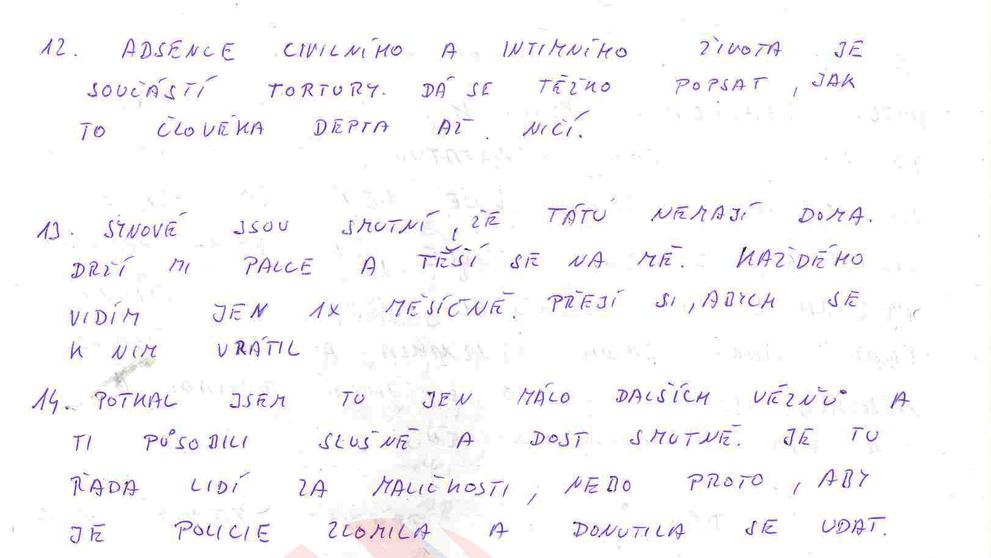 12. ADSENCE CIVILNÍHO A INTIMNÍHO ŽIVOTA JE
SOUČÁSTÍ TORTURY. DÁ SE TĚŽKO POPSAT, JAK
TO ČLOVĚKA DEPTA AŽ NIČÍ.
13. SYNOVÉ JSOU SMUTNÍ, ŽE TÁTU NEMAJÍ DOMA.
DRŽÍ MI PALCE A TĚŠÍ SE NA MĚ. KAŽDÉHO
VIDÍM JEN 1X MĚSÍČNĚ. PŘEJÍ SI, ABYCH SE
K NIM VRÁTIL
14. POTKAL JSEM TU JEN MÁLO DALŠÍCH VĚZŇŮ A
TI PŮSOBILI SLUŠNĚ A DOST SMUTNĚ. JE TU
ŘADA LIDÍ ZA MALIČKOSTI, NEBO PROTO, ABY
JE POLICIE ZLOMILA A DONUTILA SE UDAT.